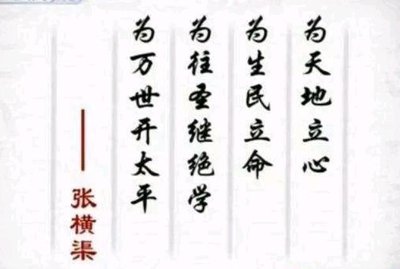 为天地立心
为生民立命
为往圣继绝学
为万世开太平
——张横渠